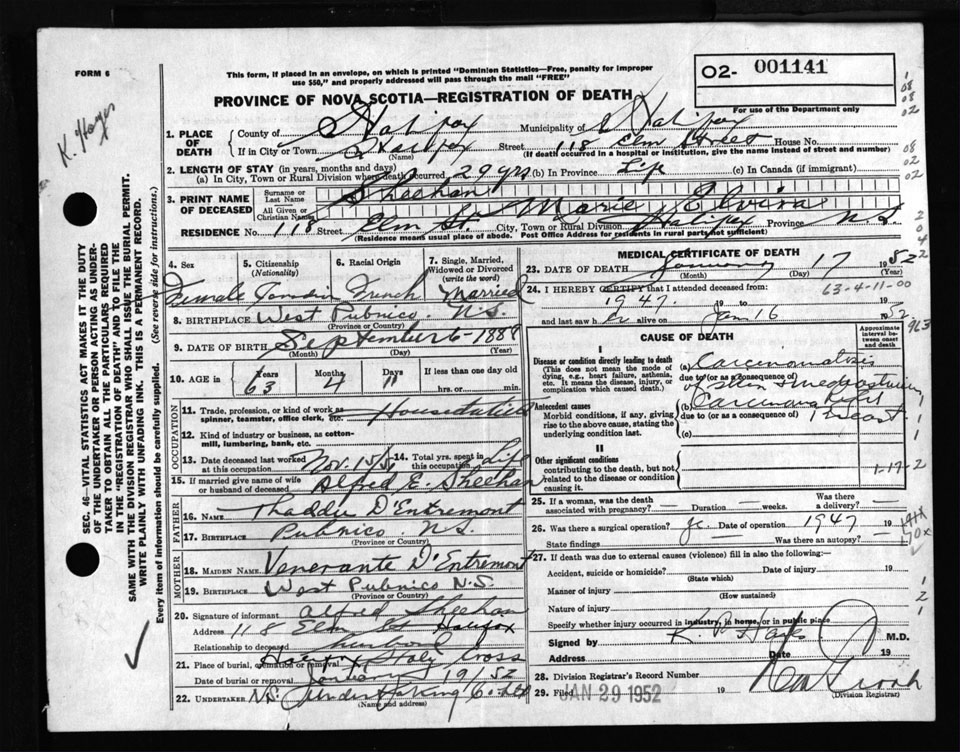 FORM 6
K. Hayes
This form, if placed in an envelope, on which is printed "Dominion Statistics—Free, penalty for improper
use $50," and properly addressed will pass through the mail "FREE"
02- 001141
For use of the Department only
PROVINCE OF NOVA SCOTIA—REGISTRATION OF DEATH
1. PLACE OF DEATH
County of Halifax Municipality of Halifax
If in City or Town Halifax (Name) Street 118 Elm Street House No.
(If death occurred in a hospital or institution, give the name instead of street and number)
2. LENGTH OF STAY (in years, months and days)
(a) In City, Town or Rural Division where death occurred 29 yrs (b) In Province Life (c) In Canada (if immigrant)
3. PRINT NAME OF DECEASED
Surname or Last Name Sheehan
All Given or Christian Names Marie Elvira
RESIDENCE No. 118 Street Elm St City, Town or Rural Division Halifax Province N.S.
(Residence means usual place of abode. Post Office Address for residents in rural parts not sufficient)
4. Sex
Female
5. Citizenship (Nationality)
Canadian
6. Racial Origin
French
7. Single, Married, Widowed or Divorced (write the word)
Married
8. BIRTHPLACE West Pubnico N.S.
(Province or Country)
9. DATE OF BIRTH September 6-1888
(Month) (Day) (Year)
10. AGE in Years Months Days If less than one day old
63 4 11 hrs. or min.
OCCUPATION
11. Trade, profession, or kind of work as spinner, teamster, office clerk, etc. Household
12. Kind of industry or business, as cotton-mill, lumbering, bank, etc.
13. Date deceased last worked at this occupation Nov. 15/51
14. Total yrs. spent in this occupation Life
15. If married give name of wife or husband of deceased Alfred E. Sheehan
FATHER
16. NAME Thaddie D'Entremont
17. BIRTHPLACE Pubnico N.S.
(Province or Country)
MOTHER
18. MAIDEN NAME Venerante D'Entremont
19. BIRTHPLACE West Pubnico N.S.
(Province or Country)
20. Signature of informant Alfred Sheehan
Address 118 Elm St Halifax
Relationship to deceased husband
21. Place of burial, cremation or removal Holy Cross
Date of burial or removal January 19/52
22. UNDERTAKER N.S. Undertaking Co. Ltd
(Name and address)
MEDICAL CERTIFICATE OF DEATH
23. DATE OF DEATH January 17 1952
(Month) (Day) (Year)
24. I HEREBY CERTIFY that I attended deceased from:
63-4-11-00
1947 19 to 19
and last saw her alive on Jan 16 1952
963
CAUSE OF DEATH
Approximate interval between onset and death
I
Disease or condition directly leading to death
(This does not mean the mode of dying, e.g., heart failure, asthenia, etc. It means the disease, injury, or complication which caused death.)
(a) Carcinomatosis
due to (or as a consequence of)
of skin & mediastinum
Antecedent causes
Morbid conditions, if any, giving rise to the above cause, stating the underlying condition last.
(b) Carcinoma Right
due to (or as a consequence of) Breast
(c)
II
Other significant conditions
contributing to the death, but not related to the disease or condition causing it.
25. If a woman, was the death associated with pregnancy? — Duration — weeks. Was there a delivery? —
26. Was there a surgical operation? Date of operation 1947 19
State findings Was there an autopsy?
27. If death was due to external causes (violence) fill in also the following:—
Accident, suicide or homicide? Date of injury 19
(State which)
Manner of injury
(How sustained)
Nature of injury
Specify whether injury occurred in industry, in home, or in public place
Signed by M.D.
Address Date 19
28. Division Registrar's Record Number
29. Filed JAN 29 1952
(Division Registrar)
SEC. 46—VITAL STATISTICS ACT MAKES IT THE DUTY
OF THE UNDERTAKER OR PERSON ACTING AS UNDER-
TAKER TO OBTAIN ALL THE PARTICULARS REQUIRED
IN THE "REGISTRATION OF DEATH" AND TO FILE THE
SAME WITH THE DIVISION REGISTRAR WHO SHALL ISSUE THE BURIAL PERMIT.
WRITE PLAINLY WITH UNFADING INK. THIS IS A PERMANENT RECORD.
Every item of information should be carefully supplied. (See reverse side for instructions.)